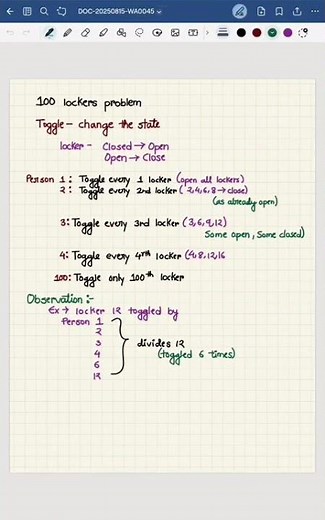 DOC-20250815-WA0045
100 lockers problem
Toggle - change the state
locker - Closed → Open
Open → Close
Person 1: Toggle every 1 locker (open all lockers)
2: Toggle every 2nd locker (2,4,6,8 → close)
(as already open)
3: Toggle every 3rd locker (3,6,9,12)
Some open, Some closed)
4: Toggle every 4th locker (4,8,12,16
100: Toggle only 100th locker
Observation:-
Ex → locker 12 toggled by
Person 1
2
3
4
6
12
divides 12
(toggled 6 times)